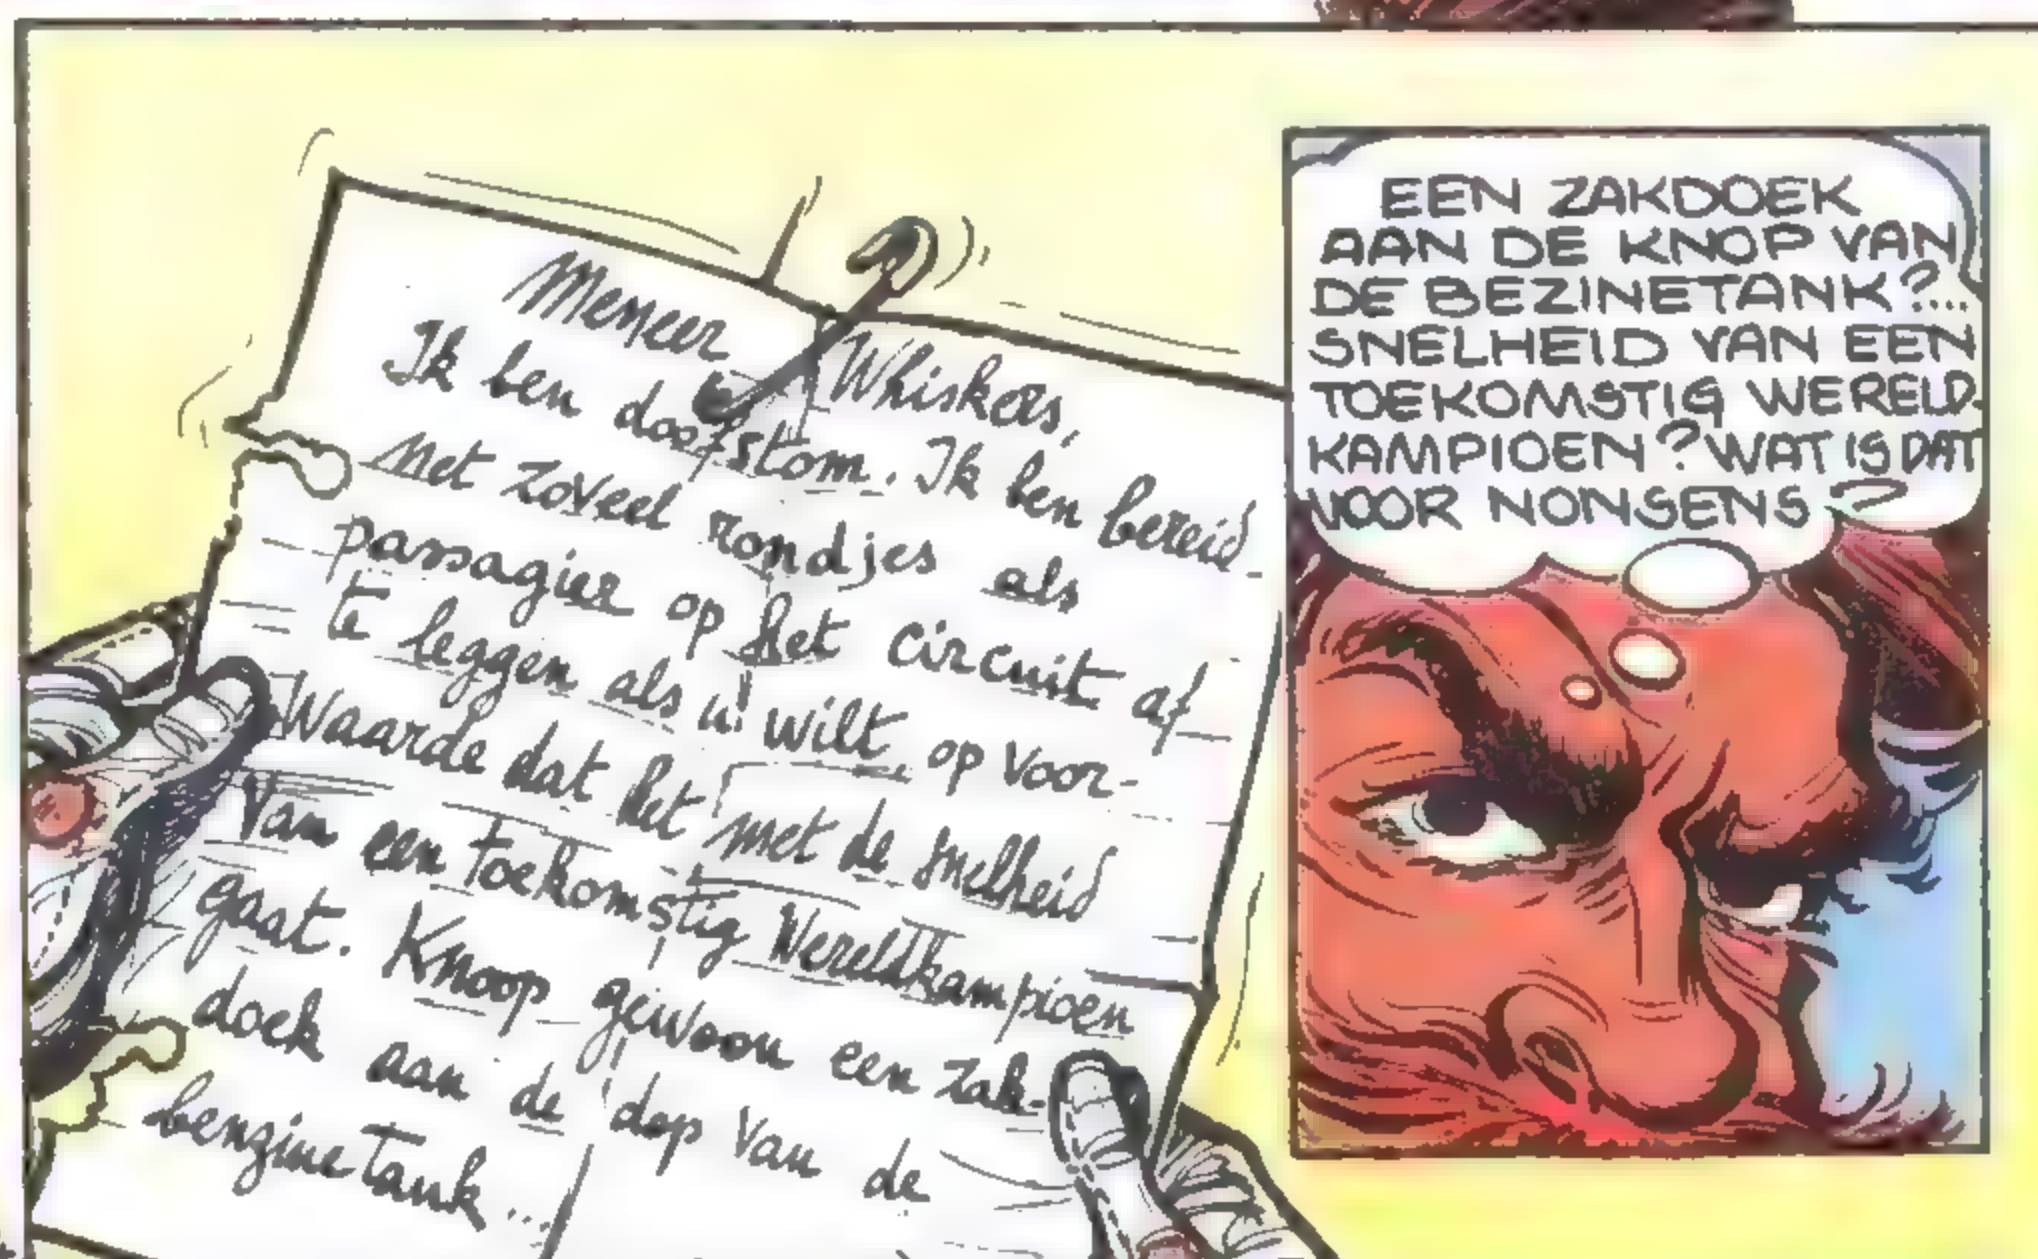 Meneer Whiskers,
Ik ben doofstom. Ik ben bereid
net zoveel rondjes als
passagier op het circuit af
te leggen als u wilt, op voor-
waarde dat het met de snelheid
van een toekomstig wereldkampioen
gaat. Knoop gewoon een zak-
doek aan de dop van de
benzinetank...
EEN ZAKDOEK
AAN DE KNOP VAN
DE BEZINETANK?...
SNELHEID VAN EEN
TOEKOMSTIG WERELD-
KAMPIOEN? WAT IS DAT
VOOR NONSENS?